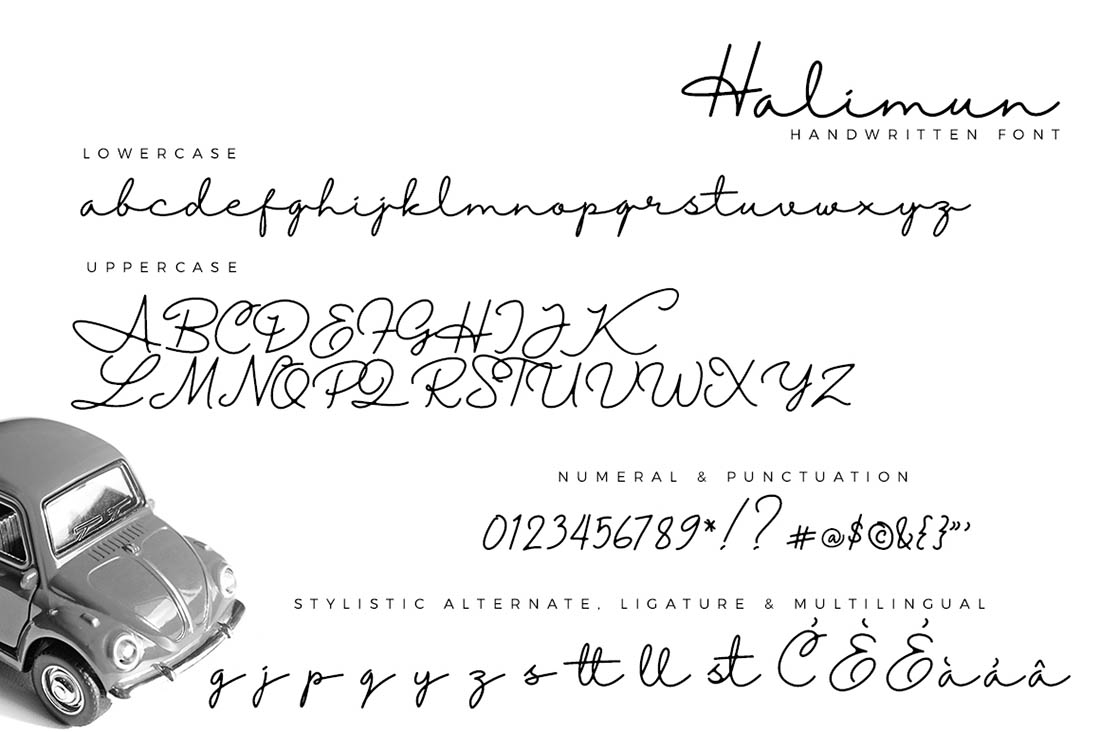 Halimun
HANDWRITTEN FONT
LOWERCASE
abcdefghijklmnopqrstuvwxyz
UPPERCASE
ABCDEFGHIJK
LMNOPQRSTUVWXYZ
NUMERAL & PUNCTUATION
0123456789*!? #@$©&{}"'
STYLISTIC ALTERNATE, LIGATURE & MULTILINGUAL
g j p q y z s tt ll st Ċ È Ė à ȧ â